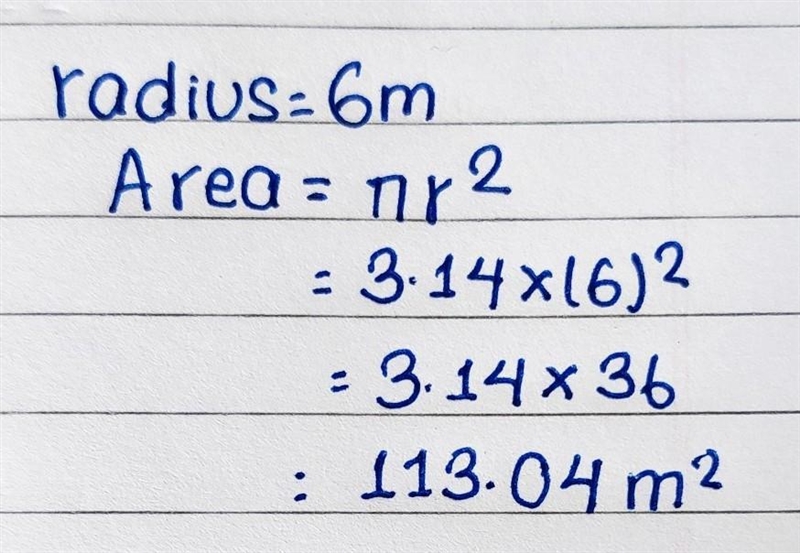 radius=6m
Area = πr²
= 3.14×(6)²
= 3.14×36
: 113.04 m²